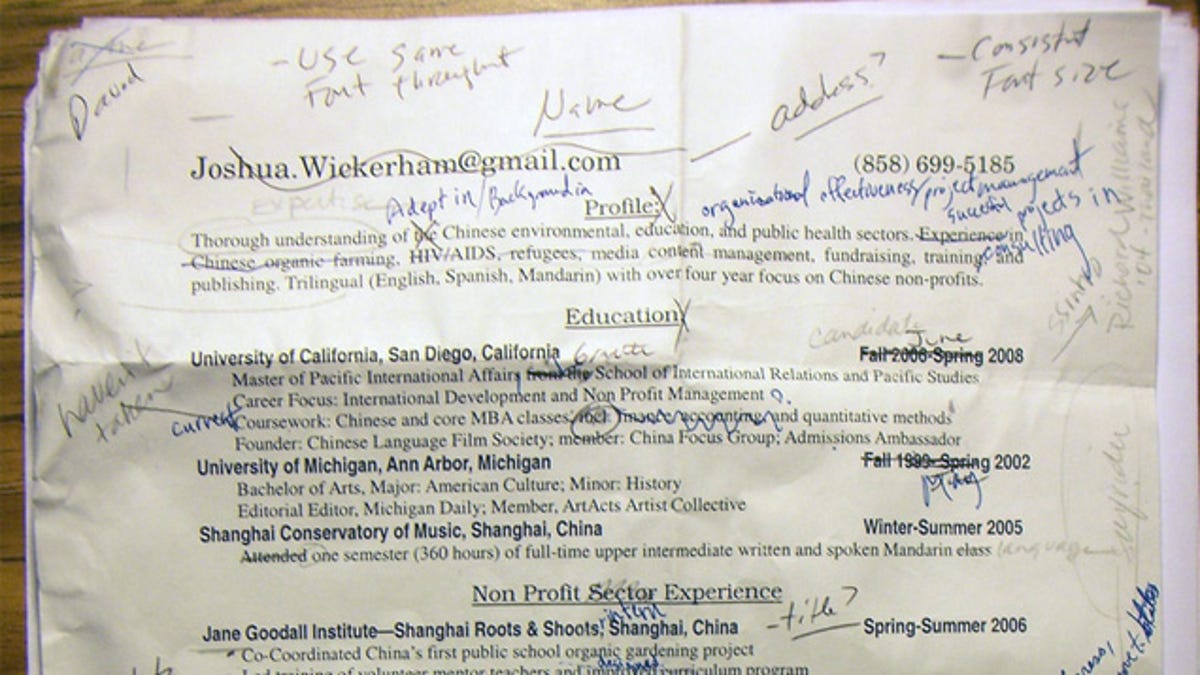 David
- Use same
Font throughout
Name
address?
- Consistent
Font size
Joshua.Wickerham@gmail.com (858) 699-5185
expertise Adept in/Background in
Profile:
organizational effectiveness/project management
successful projects in
consulting
Thorough understanding of the Chinese environmental, education, and public health sectors. Experience in
Chinese organic farming, HIV/AIDS, refugees, media content management, fundraising, training, and
publishing. Trilingual (English, Spanish, Mandarin) with over four year focus on Chinese non-profits.
Richard Williams
'04 - Thailand
Education
candidate
June
University of California, San Diego, California Fall 2006-Spring 2008
Master of Pacific International Affairs from the School of International Relations and Pacific Studies
Career Focus: International Development and Non Profit Management
haven't
taken
current
Coursework: Chinese and core MBA classes, incl. finance, accounting, and quantitative methods
Founder: Chinese Language Film Society; member: China Focus Group; Admissions Ambassador
University of Michigan, Ann Arbor, Michigan Fall 1999-Spring 2002
May
Bachelor of Arts, Major: American Culture; Minor: History
Editorial Editor, Michigan Daily; Member, ArtActs Artist Collective
Shanghai Conservatory of Music, Shanghai, China Winter-Summer 2005
Attended one semester (360 hours) of full-time upper intermediate written and spoken Mandarin class language
Non Profit Sector Experience
intern
- title?
Jane Goodall Institute—Shanghai Roots & Shoots, Shanghai, China Spring-Summer 2006
Co-Coordinated China's first public school organic gardening project
designed
Led training of volunteer mentor teachers and improved curriculum program